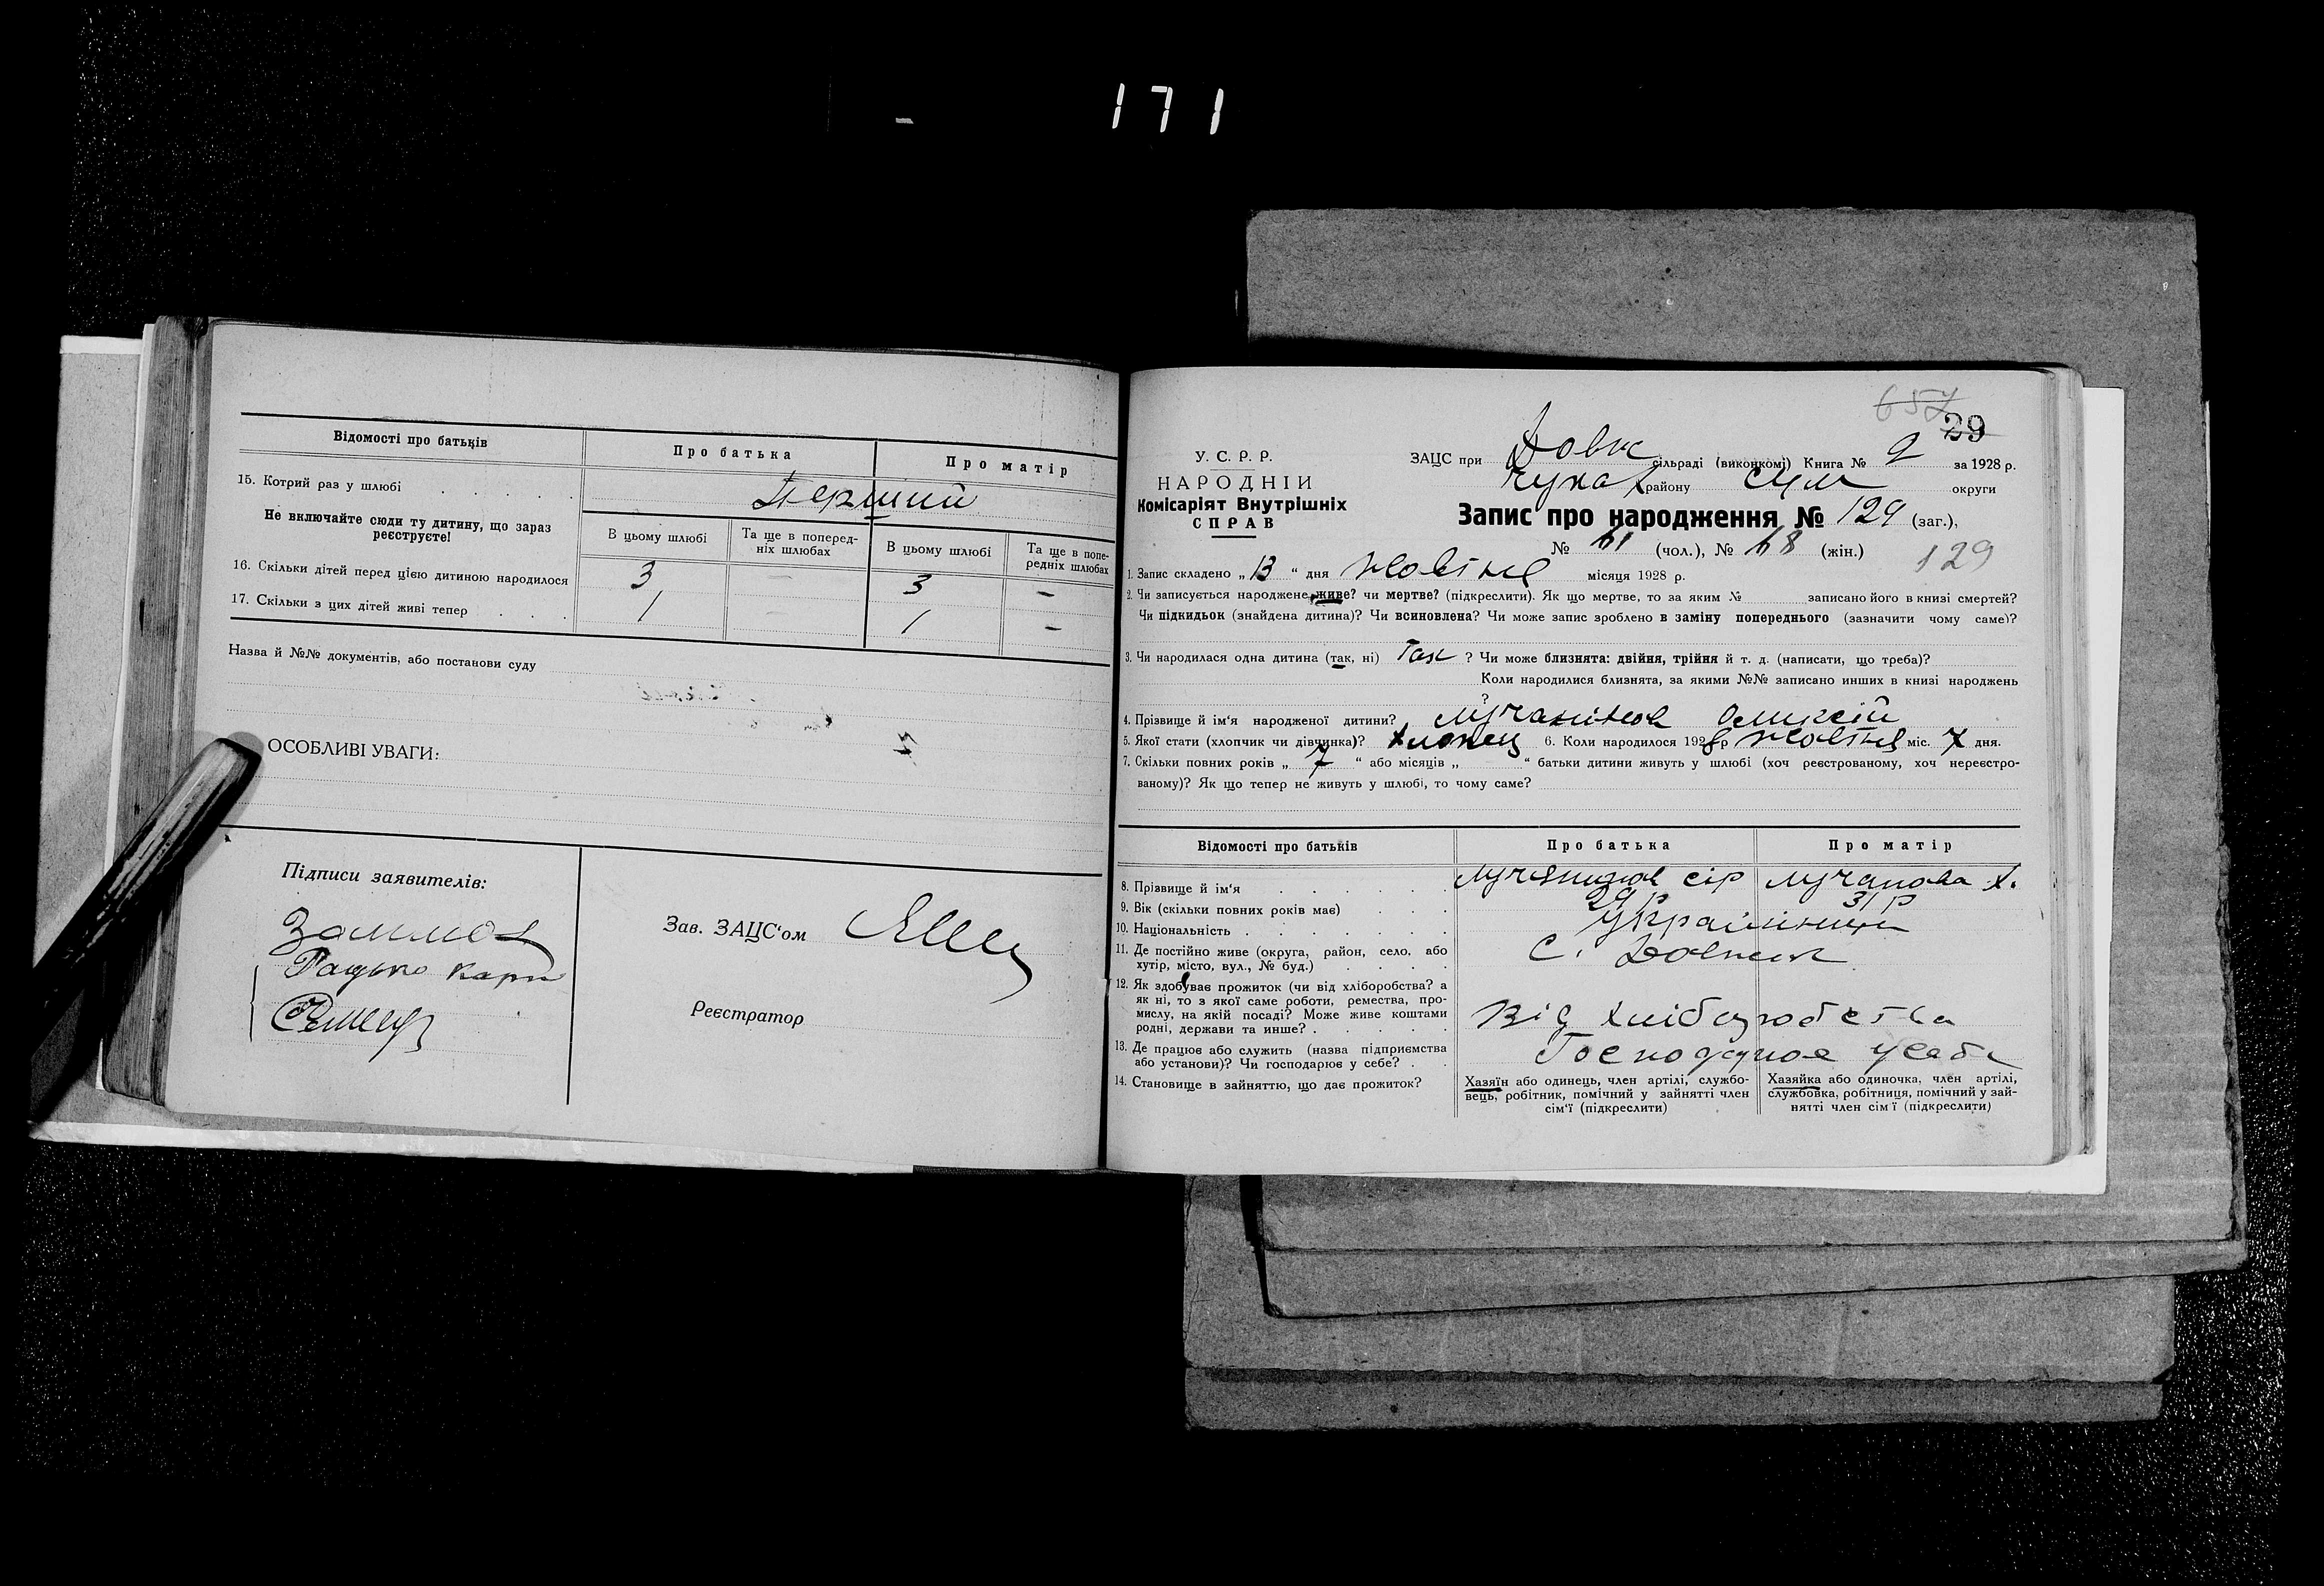 171
Відомості про батьків
Про батька
Про матір
15. Котрий раз у шлюбі
Перший
Не включайте сюди ту дитину, що зараз
реєструєте!
В цьому шлюбі
Та ще в поперед-
ніх шлюбах
В цьому шлюбі
Та ще в попе-
редніх шлюбах
16. Скільки дітей перед цією дитиною народилося
3 — 3 —
17. Скільки з цих дітей живі тепер
1 — 1 —
Назва й №№ документів, або постанови суду
ОСОБЛИВІ УВАГИ:
Підписи заявителів:
Зав. ЗАЦС‘ом
Реєстратор
657
29
У. С. Р. Р.
НАРОДНІЙ
Комісаріят Внутрішніх
СПРАВ
ЗАЦС при Довж сільраді (виконкомі) Книга № 2 за 1928 р.
району Сум округи
Запис про народження № 129 (заг.),
№ 61 (чол.), № 68 (жін.)
129
1. Запис складено „13“ дня жовтня місяця 1928 р.
2. Чи записується народжене живе? чи мертве? (підкреслити). Як що мертве, то за яким № записано його в книзі смертей?
Чи підкидьок (знайдена дитина)? Чи всиновлена? Чи може запис зроблено в заміну попереднього (зазначити чому саме)?
3. Чи народилася одна дитина (так, ні) Так ? Чи може близнята: двійня, трійня й т. д. (написати, що треба)?
Коли народилися близнята, за якими №№ записано инших в книзі народжень
?
4. Прізвище й ім‘я народженої дитини? Оликсій
5. Якої стати (хлопчик чи дівчинка)? Хлопец 6. Коли народилося 1928 р жовтня міс. 7 дня.
7. Скільки повних років „ 7 “ або місяців „ “ батьки дитини живуть у шлюбі (хоч реєстрованому, хоч нереєстро-
ваному)? Як що тепер не живуть у шлюбі, то чому саме?
Відомості про батьків
Про батька
Про матір
8. Прізвище й ім‘я
9. Вік (скільки повних років має) 29 р 31 р
10. Національність Українци
11. Де постійно живе (округа, район, село, або
хутір, місто, вул., № буд.)
с. Довжик
12. Як здобуває прожиток (чи від хліборобства? а
як ні, то з якої саме роботи, ремества, про-
мислу, на якій посаді? Може живе коштами
родні, держави та инше?
Від хліборобства
13. Де працює або служить (назва підприємства
або установи)? Чи господарює у себе?
14. Становище в зайняттю, що дає прожиток?
Хазяїн або одинець, член артілі, службо-
вець, робітник, помічний у зайнятті член
сім‘ї (підкреслити)
Хазяйка або одиночка, член артілі,
службовка, робітниця, помічний у зай-
нятті член сім‘ї (підкреслити)